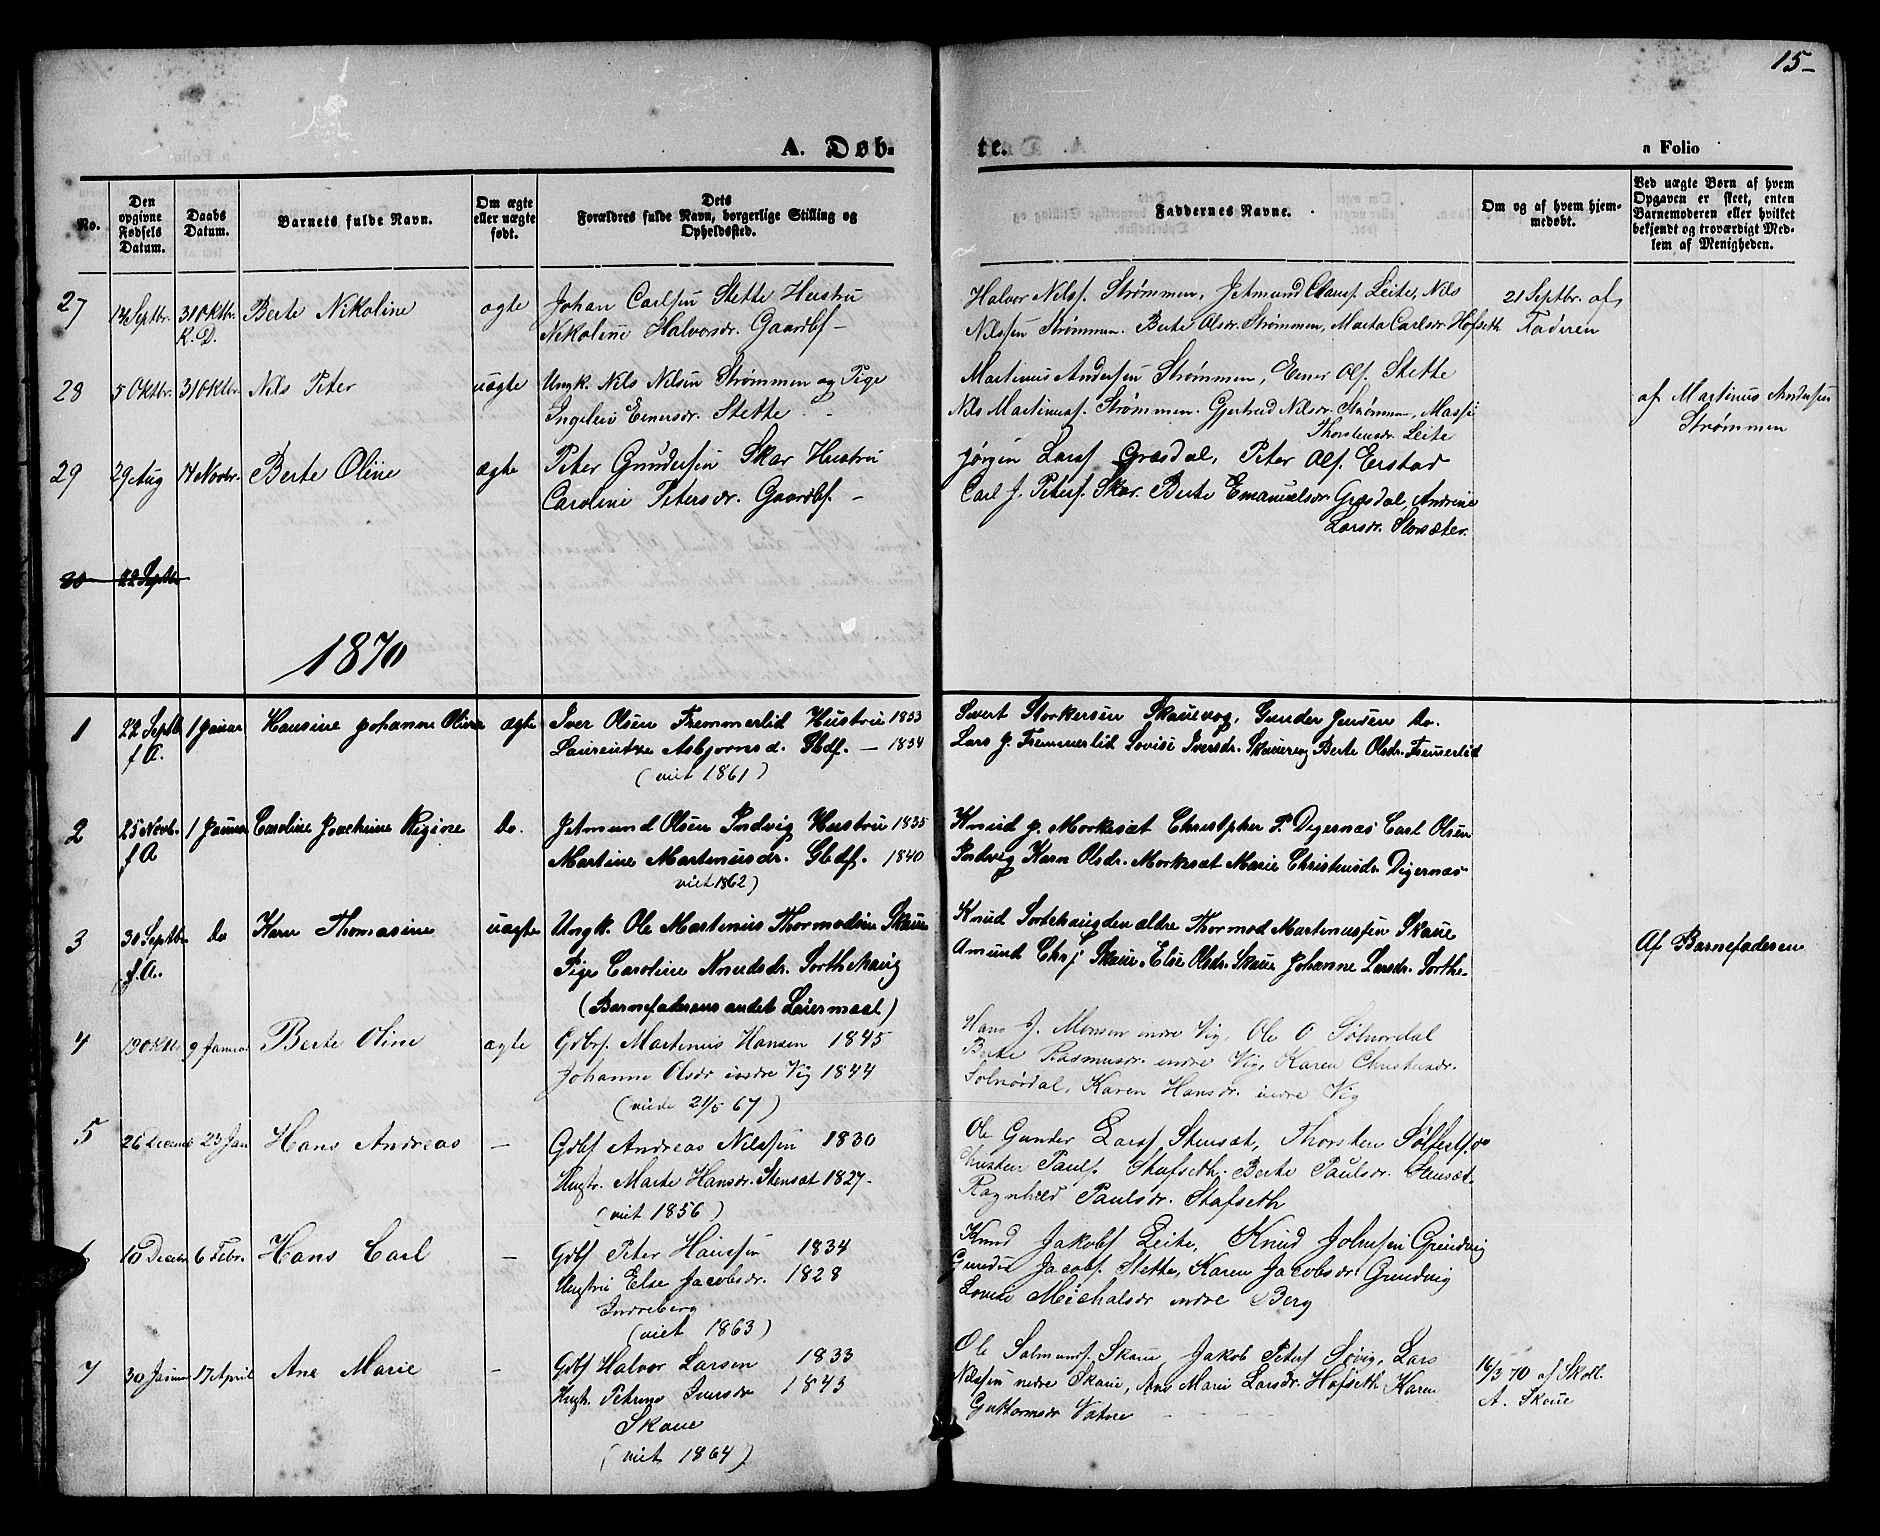 15-
A. Døb-
te.
n Folio
No.
Den opgivne Fødsels Datum.
Daabs Datum.
Barnets fulde Navn.
Om ægte eller uægte født.
Dets Forældres fulde Navn, borgerlige Stilling og Opholdssted.
Faddernes Navne.
Om og af hvem hjemmedøbt.
Ved uægte Børn af hvem Opgaven er skeet, enten Barnemoderen eller hvilket bekjendt og troværdigt Medlem af Menigheden.
27 14 Septbr. 31 Oktbr. Berte Nikoline ægte Johan Carlsen Stette Hustru
K. D. Nikoline Halvorsdr. Gaardbf. -
Halvor Nilsf. Strømmen, Jetmund Clausf. Leite, Nils
Nilssen Strømmen. Berte Olsdr. Strømmen, Marta Carlsdr. Hofseth
21 Septbr. af
Faderen
28 5 Oktbr. 31 Oktbr. Nils Peter uægte Ungk. Nils Nilsen Strømmen og Pige
Ingeleiv Einersdr. Stette. -
Martinus Andersen Strømmen, Einer Olf. Stette
Nils Martinusf. Strømmen. Gjertrud Nilsdr. Strømmen, Massi
Thorstensdr. Leite
af Martinus Andersen
Strømmen
29 29 Aug 14 Novbr. Berte Oline ægte Peter Gundersen Skar Hustru
Caroline Petersdr. Gaardbf. -
Jørgen Larsf Græsdal, Peter Olf. Erstad
Carl J. Petersf. Skar. Berte Emanuelsdr. Græsdal, Andrine
Larsdr. Slorsæter.
30 22 Septbr
1870
1 22 Septb 1 Januar Hansine Johanne Oline ægte Iver Olsen Fremmerlid Hustru 1833
f A. Laurentze Asbjørnsd. Gbdf. - 1834
(viet 1861)
Sivert Storkersen Skauevog, Gunder Jensen do.
Lars J. Fremmerlid Lovise Iversdr. Skauevog Berte Olsdr. Fremerlid
2 25 Novb. 1 Januar Caroline Joachime Regine do. Jetmund Olsen Indvig Hustru 1835
f A Martine Martinusdr. Gbdf. - 1840
viet 1862)
Knud J. Morkesæt Christpher P. Digernæs Carl Olsen
Indvig Karn Olsdr. Morkesæt Marie Christensdr. Digernæs
3 30 Septbr do Karn Thomasine uægte Ungk. Ole Martinus Thormodsen Skaue
f. A. Pige Caroline Knudsdr. Sorthehaug
(Barnefaderens andet Leiermaal)
Knud Sortehaug den ældre Thormod Martinussen Skaue
Amund Chrf Skaue. Else Olsdr. Skaue Johanne Larsdr. Sorthe-
Af Barnefaderen
4 19 Oktb 9 Januar Berte Oline ægte Gdbr. Martinus Hansen 1845
Johanne Olsdr indre Vig 1844
(viede 21/5 67)
Hans J. Monsen indre Vig, Ole O Solnørdal
Berte Rasmusdr. indre Vig, Karen Christensdr.
Solnørdal, Karen Hansdr. indre Vig
5 26 Decemb 23 Jan Hans Andreas - Gdbf Andreas Nilssen 1830
Hustr. Marte Hansdr. Stensæt 1827-
(viet 1856)
Ole Gunder Larsf Stensæt, Thorsten
Paulf. Stafseth. Berte Paulsdr. Stensæt.
Ragnhild Paulsdr. Stafseth
10 Decbr 6 Febr. Hans Carl - Gdbf Peter Hanssen 1834
Hustru Else Jacobsdr. 1828
Indreberg
(viet 1863)
Knud Jakobf Leite, Knud Johnsen Grindvig
Gunder Jacobf. Stette, Karen Jacobsdr. Grindvig
Lovise Michalsdr indre Berg
7 30 Januar 17 April Ane Marie - Gdbf Halvor Larsen 1833
Hustr. Petrine Iversdr 1843
Skaue
(viet 1864)
Ole Salmundf. Skaue Jakob Petersf Søvig, Lars
Nilssen nedre Skaue, Ane Marie Larsdr. Hofseth Karen
Guttormsdr Vatne
16/3 70 af Skoll.
A. Skaue